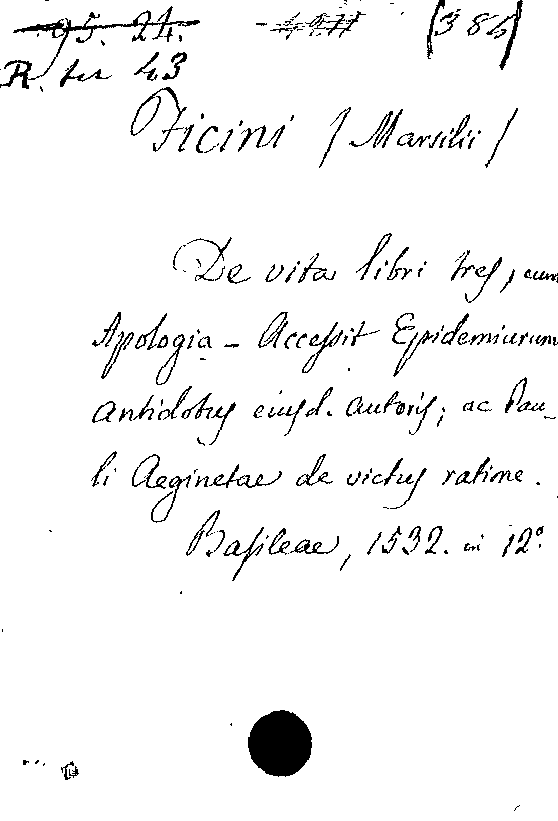 95. 24. (386)
R. ter 43
Ficini / Marsilii /
De vita libri tres, cum
Apologia - Accessit Epidemiarum
antidotus eiusd. autoris; ac Pau-
li Aeginetae de victus ratione.
Basileae, 1532. in 12º.